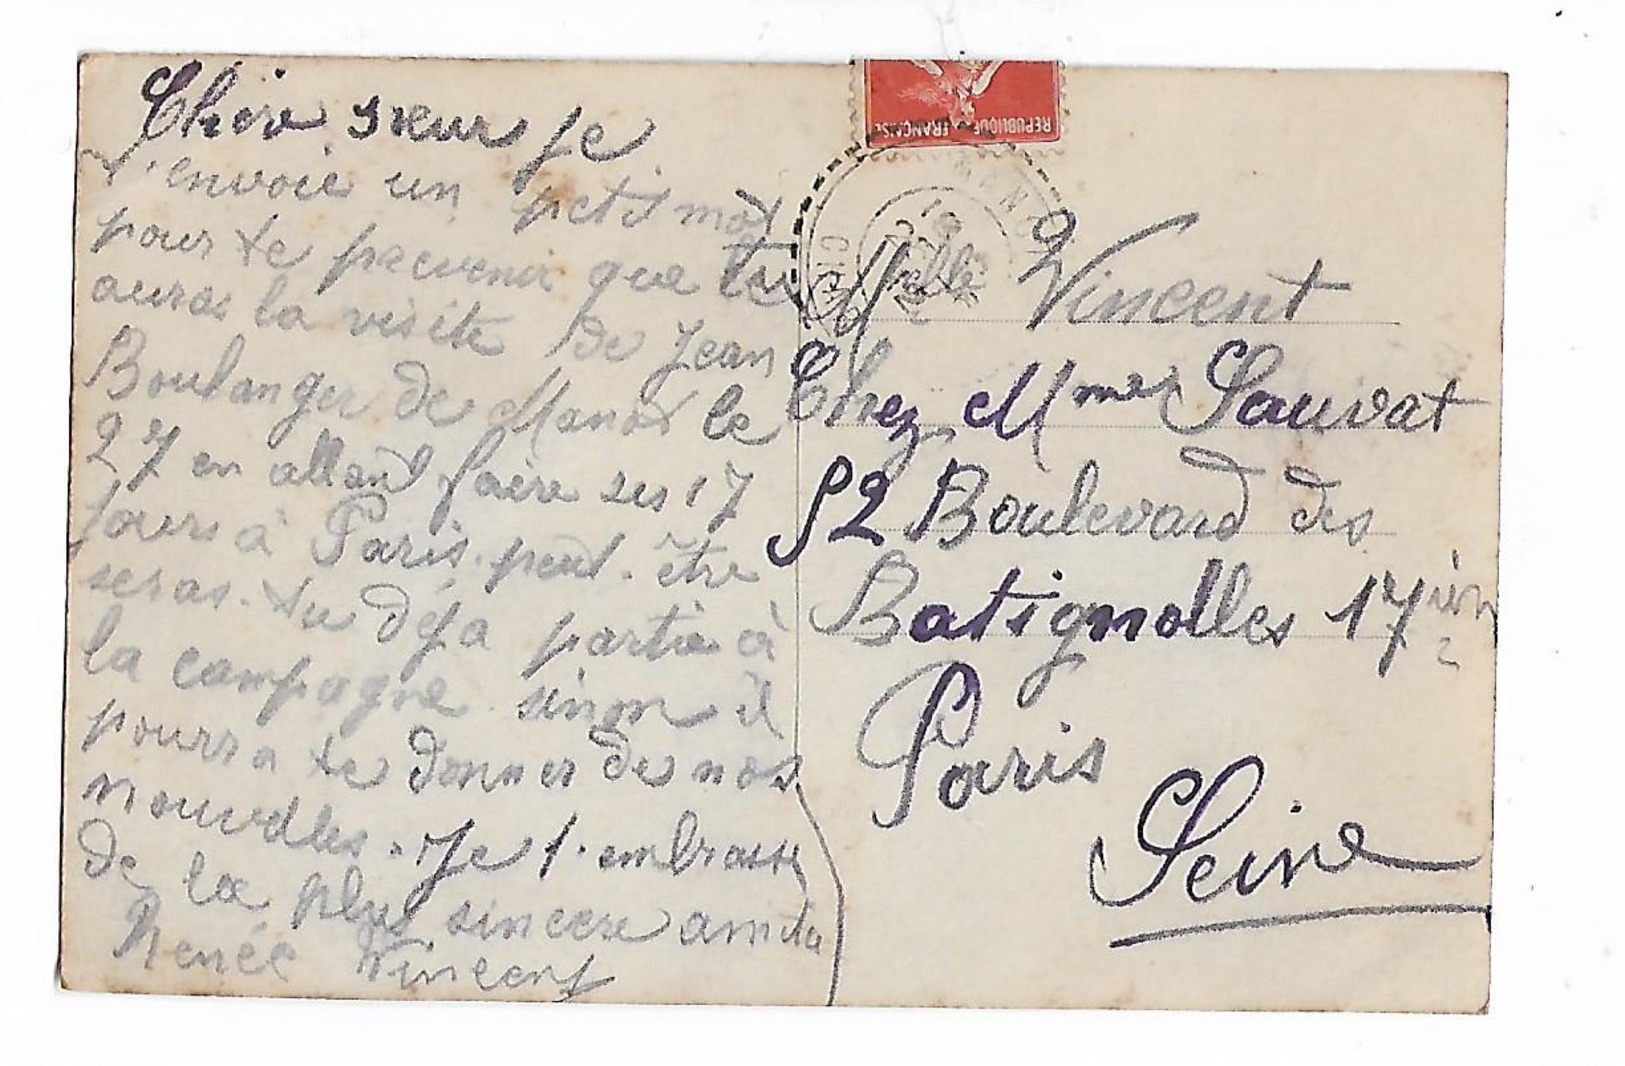 Chère sœur je
t'envoie un petit mot
pour te prevenir que tu
auras la visite de Jean
Boulanger de Manot le
27 en allant faire ses 17
jours à Paris. peut-être
seras-tu déja partie à
la campagne sinon il
pourra te donner de nos
nouvelles. Je t'embrasse
de la plus sincere amitié
Renée Vincent
REPUBLIQUE FRANÇAISE
MANOT
Melle Vincent
Chez Mme Sauvat
52 Boulevard des
Batignolles 17ièm
Paris
Seine